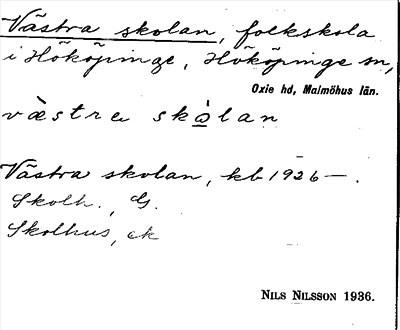 Västra skolan, folkskola
i Hököpinge, Hököpinge sn,
Oxie hd, Malmöhus län.
væ̀stra skọ̀lan
Västra skolan, kb 1926 —.
Skolh., G.
Skolhus, ek
NILS NILSSON 1936.